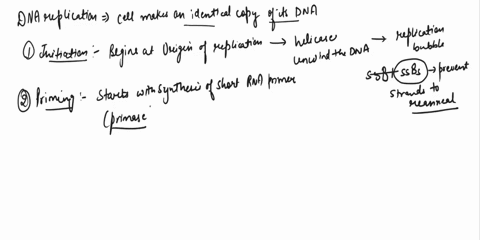 DNA replication => cell makes an identical copy of its DNA
① Initiation :- Begins at Origin of replication → helicase unwind the DNA → replication bubble
SSBs → prevent strands to reanneal
② Priming :- Starts with synthesis of short RNA primer
(primase